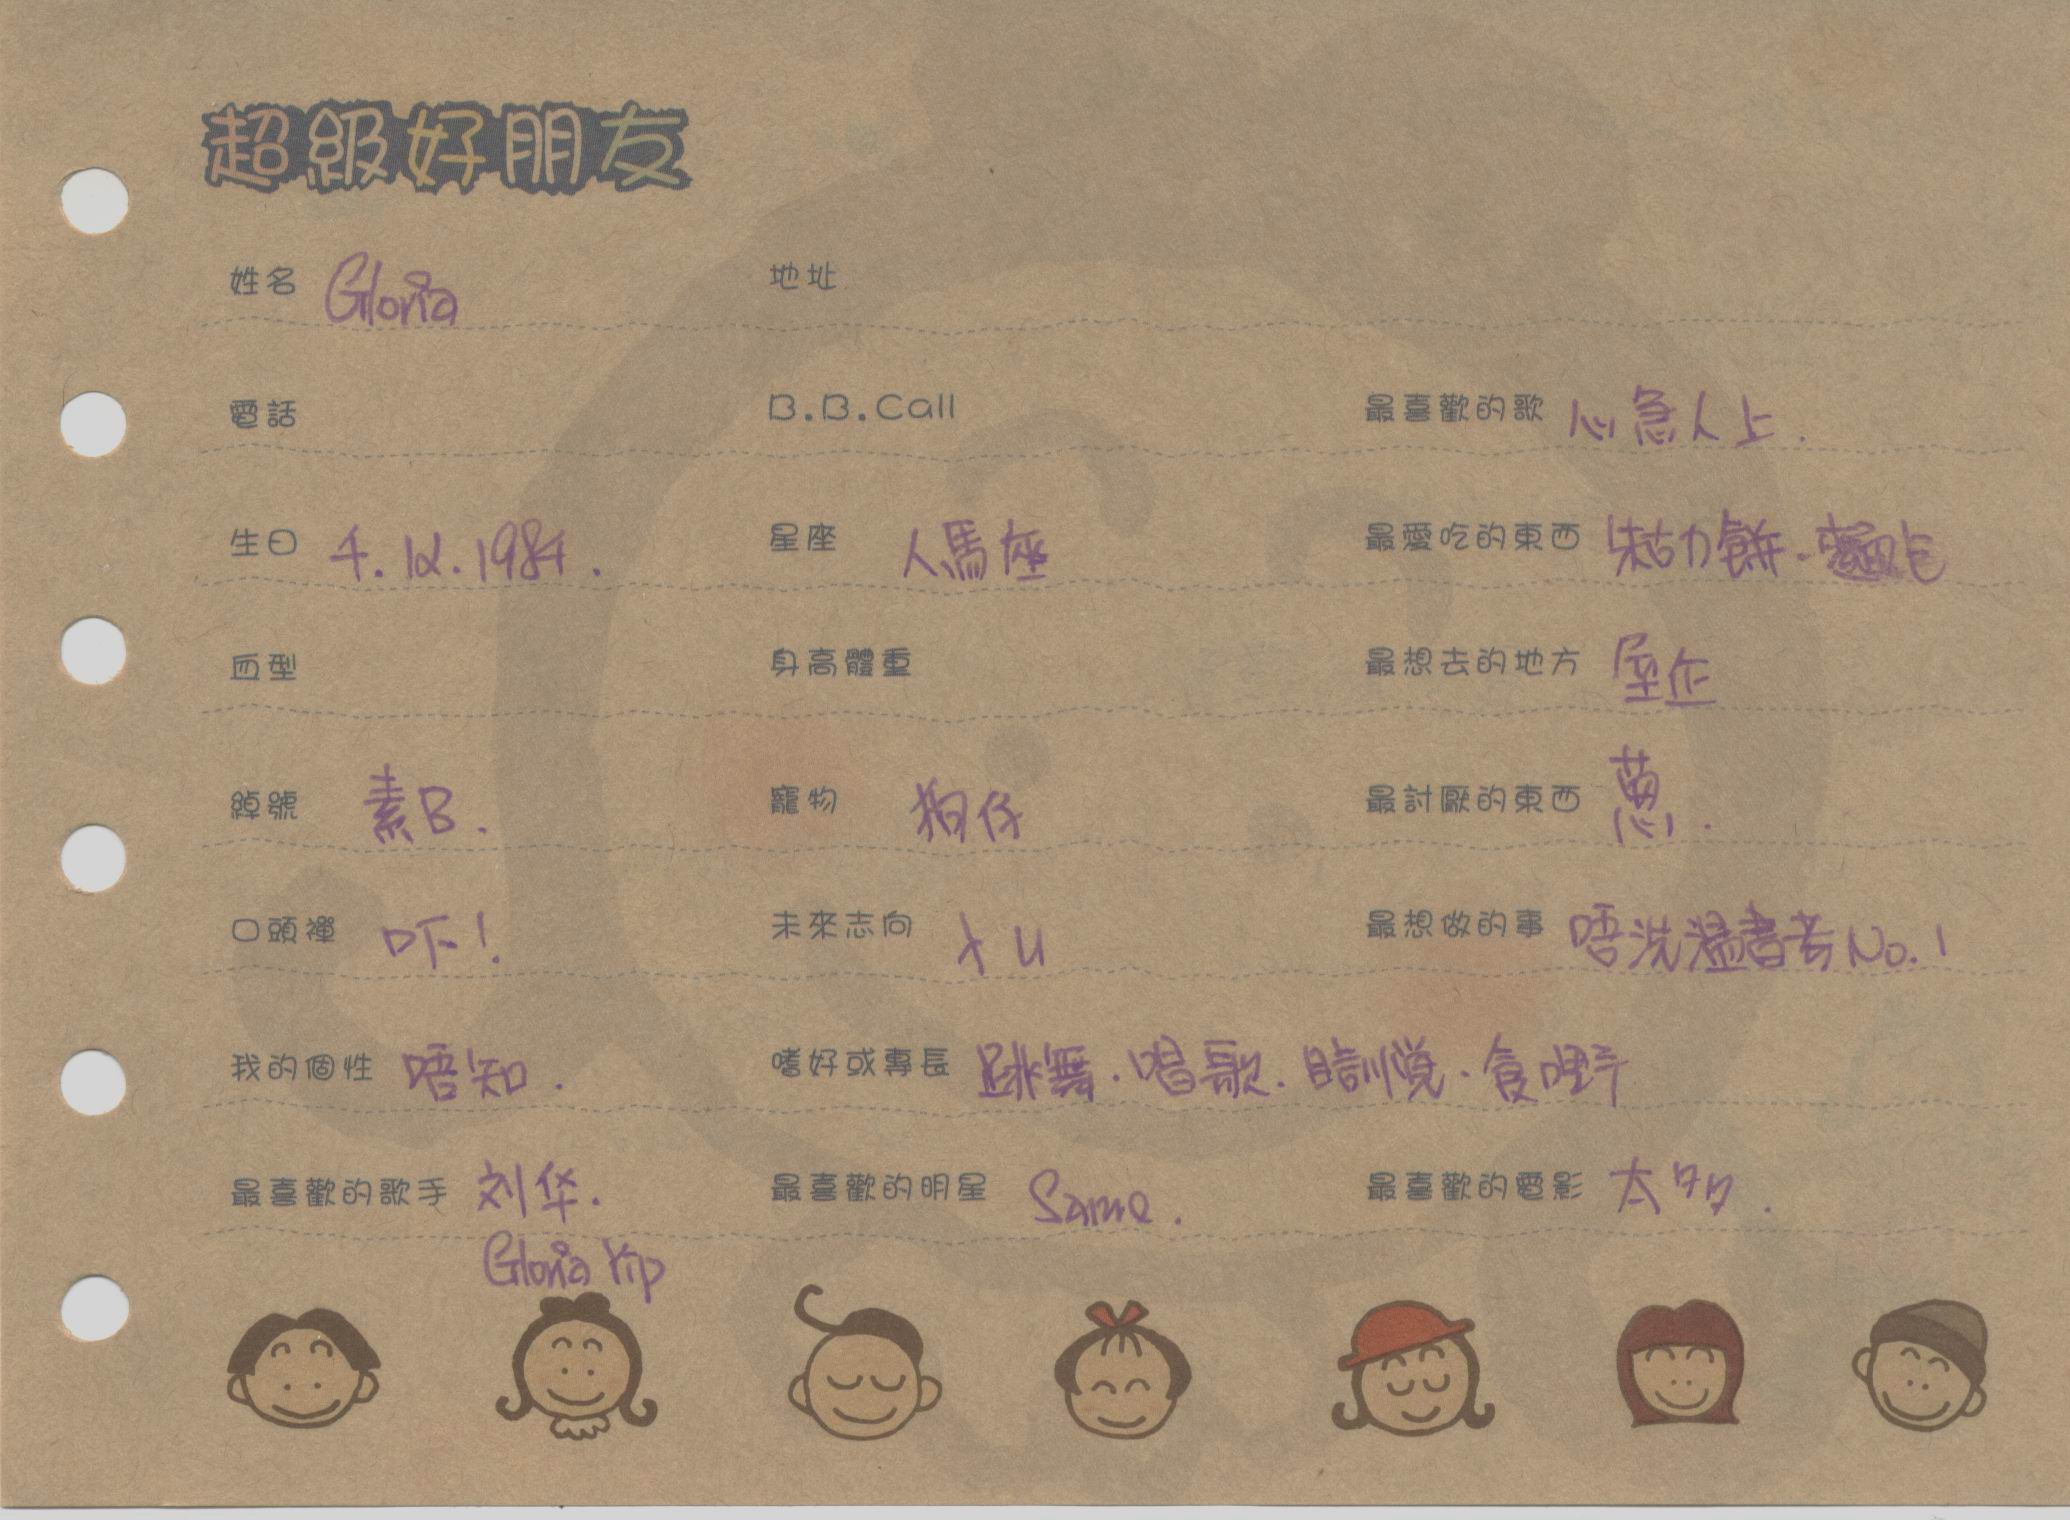 超級好朋友
姓名 Gloria 地址
電話 B.B.Call 最喜歡的歌 心急人上.
生日 4.12.1984. 星座 人馬座 最愛吃的東西 朱古力餅.麵包
血型 身高體重 最想去的地方 屋企
綽號 素B. 寵物 狗仔 最討厭的東西 蔥.
口頭禪 吓! 未來志向 最想做的事 唔洗溫書考No.1
我的個性 唔知. 嗜好或專長 跳舞.唱歌.瞓覺.食嘢
最喜歡的歌手 刘华. 最喜歡的明星 Same. 最喜歡的電影 太多.
Gloria Yip